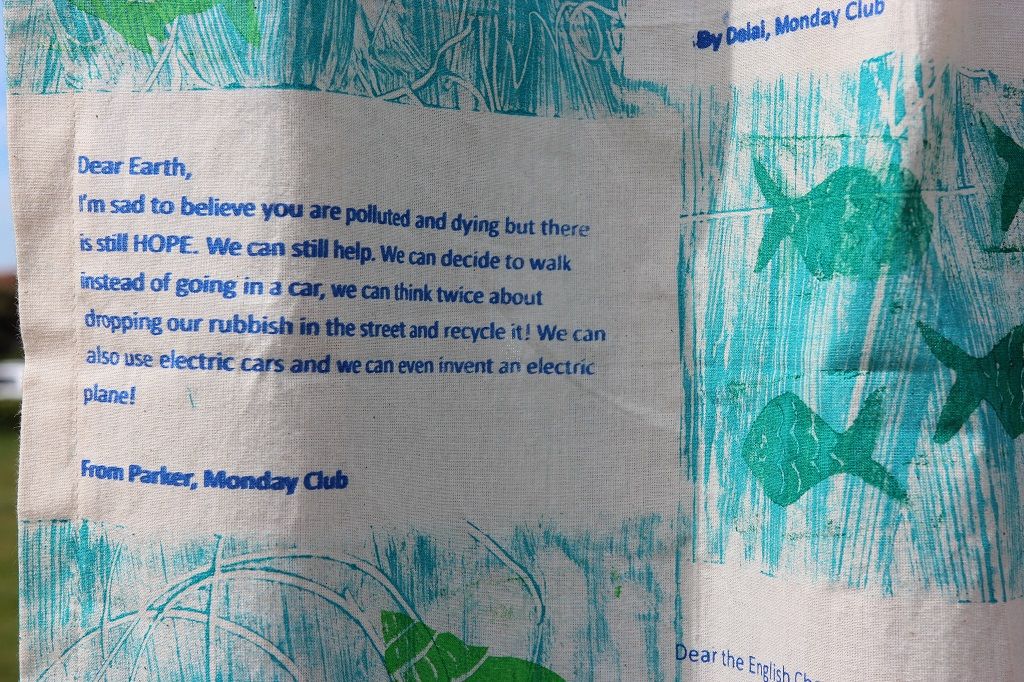 By Delai, Monday Club
Dear Earth,
I'm sad to believe you are polluted and dying but there
is still HOPE. We can still help. We can decide to walk
instead of going in a car, we can think twice about
dropping our rubbish in the street and recycle it! We can
also use electric cars and we can even invent an electric
plane!
From Parker, Monday Club
Dear the English